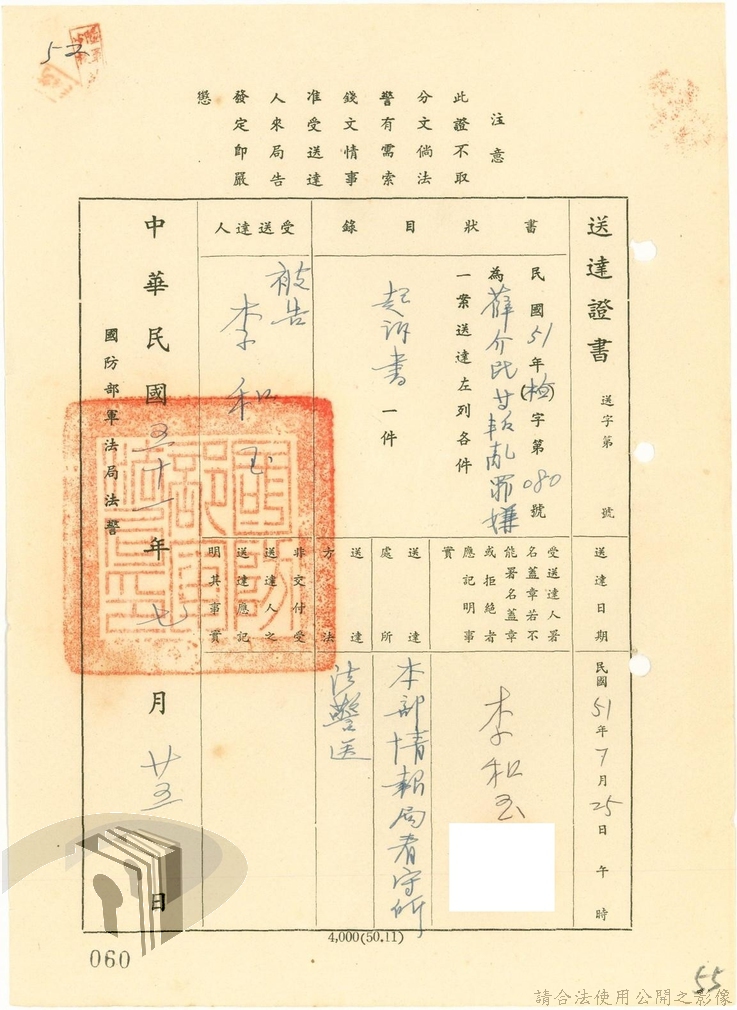 52
注意
此證不取
分文倘法
警有需索
錢文情事
准受送達
人來局告
發定即嚴
懲
送達證書 送字第 號
送達日期 民國51年7月25日 午 時
書狀目錄
民國51年(檢)字第080號
為薛介民等叛亂罪嫌
一案送達左列各件
起訴書一件
受送達人
被告
李和玉
受送達人署
名蓋章若不
能署名蓋章
或拒絕者
應記明事
實
李和玉
送達處所
本部情報局看守所
送達方法
法警送
非交付受
送達人之
送達應記
明其事實
中華民國五十一年七月廿五日
國防部軍法局法警
4,000(50.11)
060
55
請合法使用公開之影像